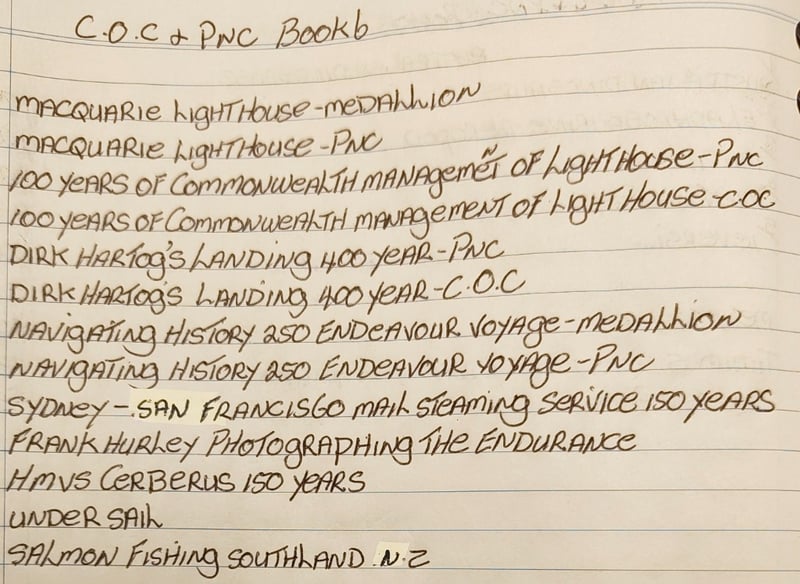 C.O.C & PNC BOOK 6
MACQUARIE LIGHTHOUSE-MEDALLION
MACQUARIE LIGHTHOUSE-PNC
100 YEARS OF COMMONWEALTH MANAGEMENT OF LIGHTHOUSE-PNC
100 YEARS OF COMMONWEALTH MANAGEMENT OF LIGHTHOUSE-C.OC
DIRK HARTOG'S LANDING 400 YEAR-PNC
DIRK HARTOG'S LANDING 400 YEAR-C.O.C
NAVIGATING HISTORY 250 ENDEAVOUR VOYAGE-MEDALLION
NAVIGATING HISTORY 250 ENDEAVOUR VOYAGE-PNC
SYDNEY-SAN FRANCISGO MAIL STEAMING SERVICE 150 YEARS
FRANK HURLEY PHOTOGRAPHING THE ENDURANCE
HMVS CERBERUS 150 YEARS
UNDER SAIL
SALMON FISHING SOUTHLAND N.Z